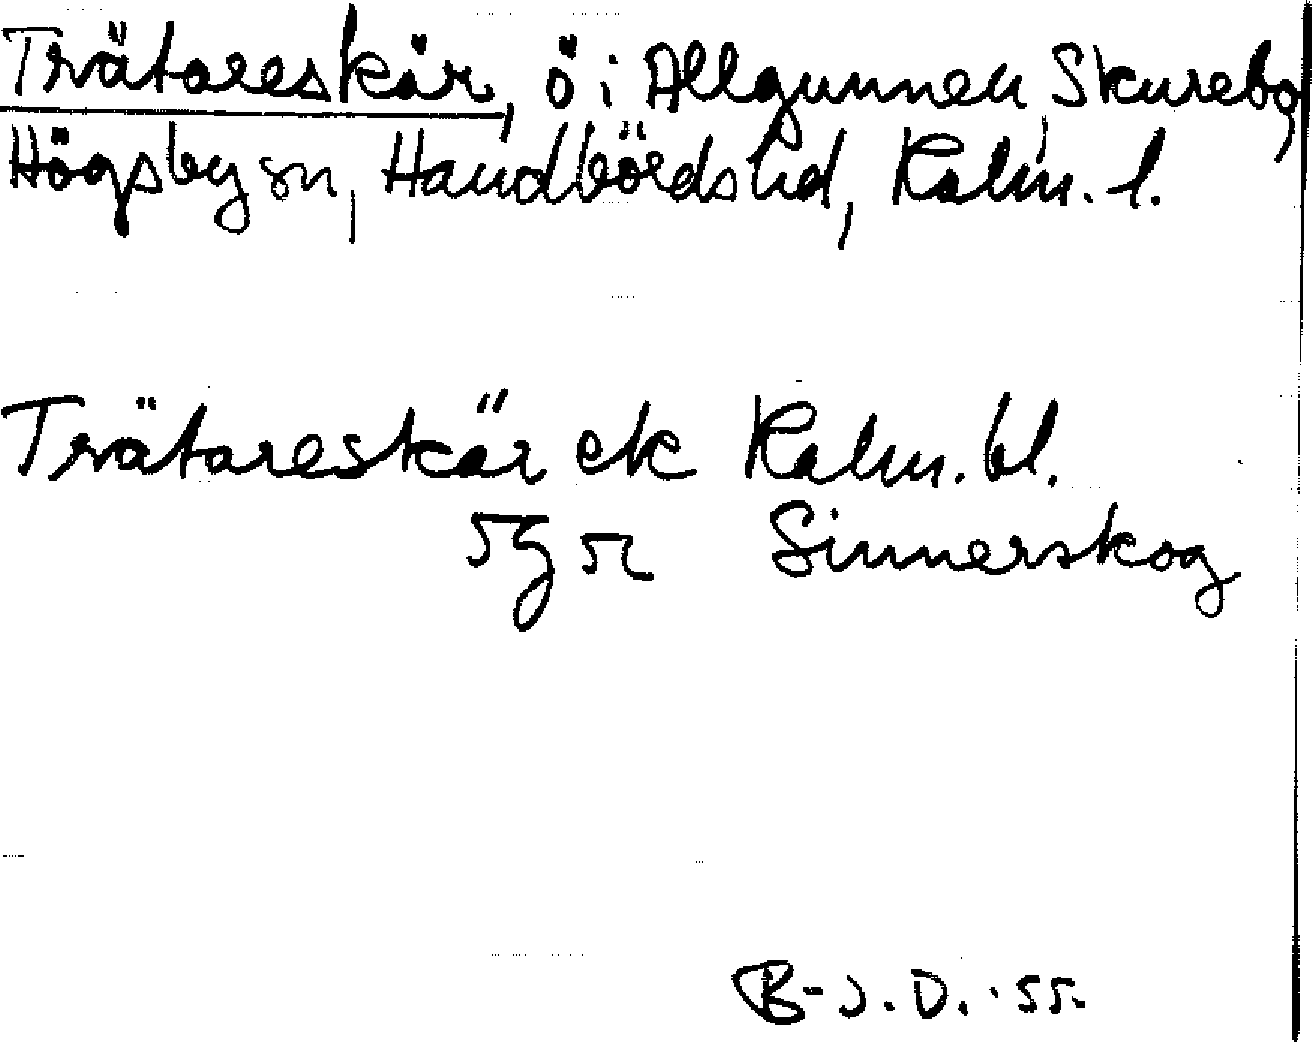 Trätareskär, ö i Allgunnen, Skurebo,
Högsby sn, Handbörds hd, Kalm. l.
Trätareskär ek Kalm. bl.
5g52 Sinnerskog
B-J.D. 55.